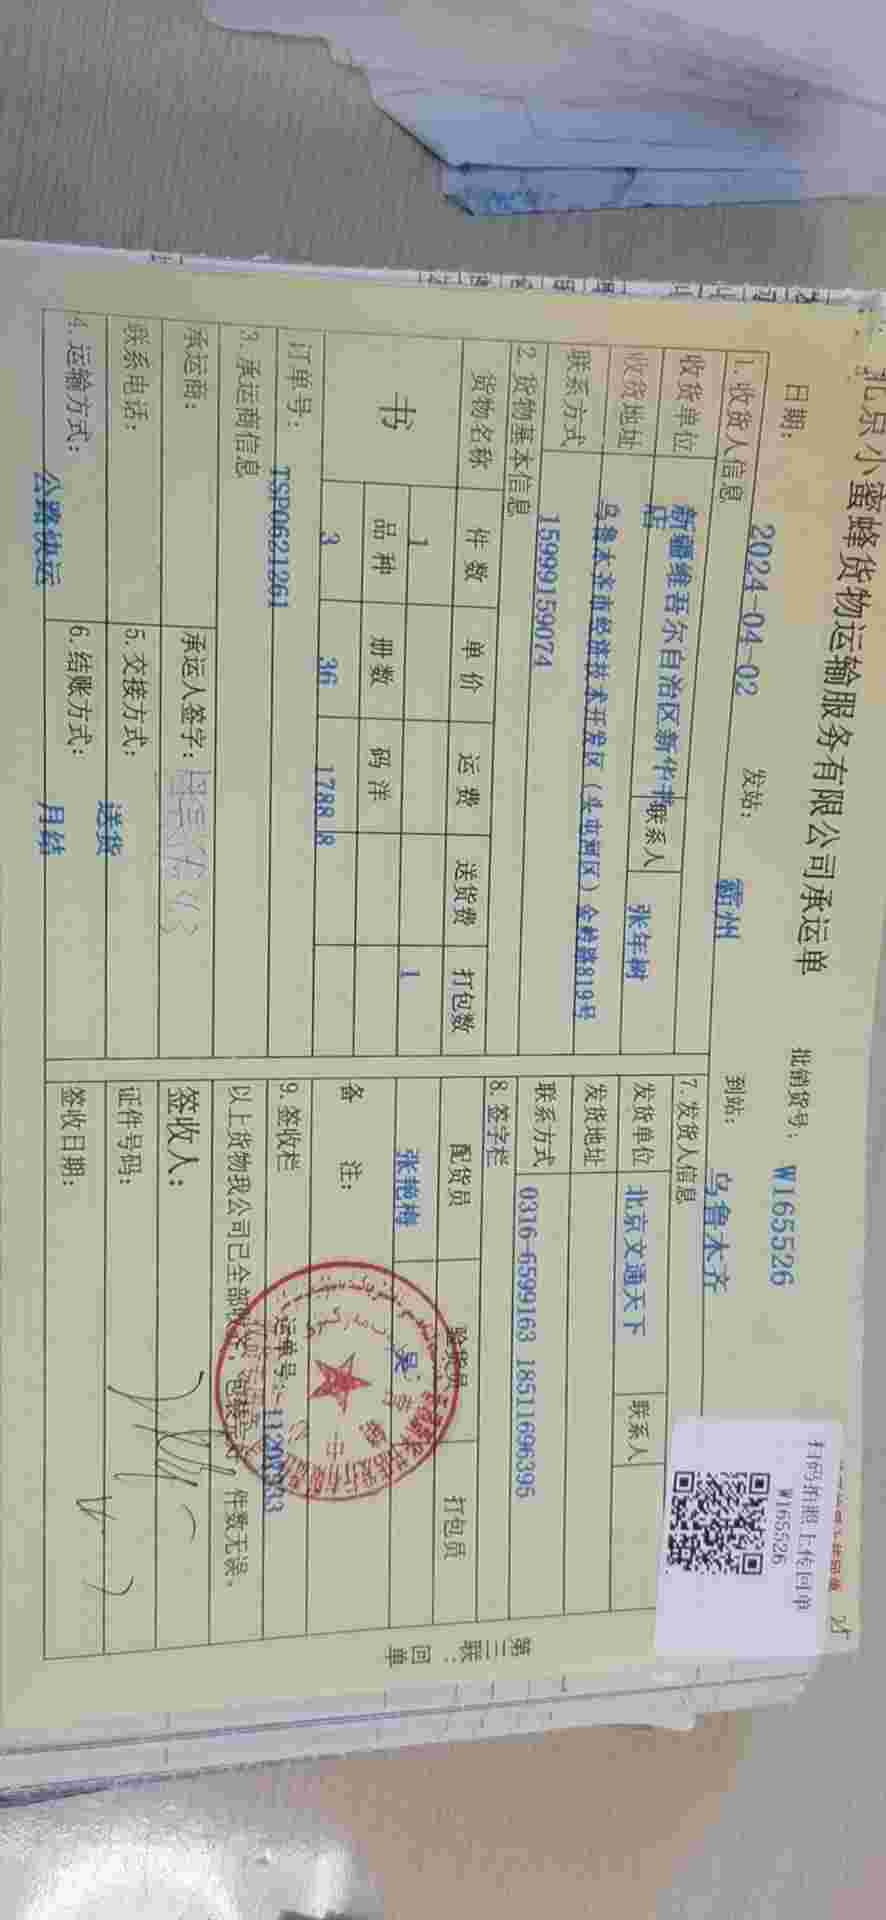 北京小蜜蜂货物运输服务有限公司承运单
扫码拍照上传回单
W165526
日期: 2024-04-02 发站: 霸州 到站: 乌鲁木齐
批销货号: W165526
1. 收货人信息
收货单位 新疆维吾尔自治区新华书店 联系人 张年树
收货地址 乌鲁木齐市经济技术开发区（头屯河区）金岭路819号
联系方式 15999159074
2. 货物基本信息
货物名称 件数 单价 运费 送货费 打包数
书 1 1
品种 册数 码洋
3 36 1788.8
订单号: TSP0621261
3. 承运商信息
承运商: 承运人签字:
联系电话: 5. 交接方式: 送货
4. 运输方式: 公路快运 6. 结账方式: 月结
7. 发货人信息
发货单位 北京文通天下 联系人
发货地址
联系方式 0316-6599163 18511696395
8. 签字栏
配货员 验货员 打包员
张艳梅 吴
备注:
9. 签收栏 运单号:
以上货物我公司已全部 件数无误。
签收人:
证件号码:
签收日期:
第三联: 回单